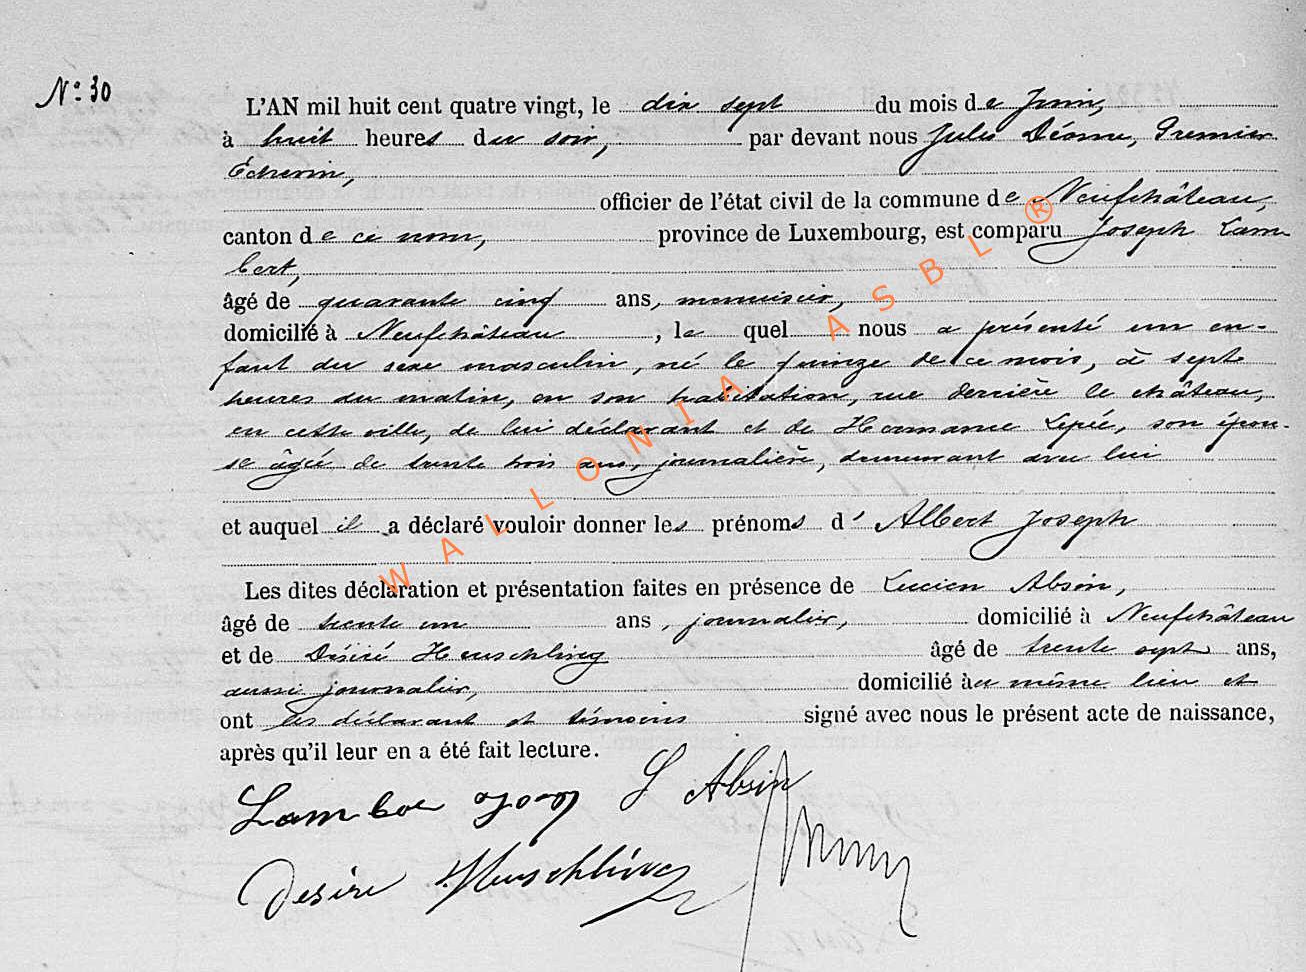 N° 30
L'AN mil huit cent quatre vingt, le dix sept du mois de Juin,
à huit heures du soir, par devant nous Jules Déome, Premier
Échevin,
officier de l'état civil de la commune de Neufchâteau,
canton de ce nom, province de Luxembourg, est comparu Joseph Lam
bert,
âgé de quarante cinq ans, menuisier,
domicilié à Neufchâteau, le quel nous a présenté un en-
fant du sexe masculin, né le quinze de ce mois, à sept
heures du matin, en son habitation, rue derrière le château,
en cette ville, de lui déclarant et de Hermance Lepée, son épou-
se âgée de trente trois ans, journalière, demeurant avec lui
et auquel il a déclaré vouloir donner les prénoms d' Albert Joseph
Les dites déclaration et présentation faites en présence de Lucien Absin,
âgé de trente un ans, journalier, domicilié à Neufchâteau
et de Désiré Heuschling âgé de trente sept ans,
aussi journalier, domicilié au même lieu et
ont les déclarant et témoins signé avec nous le présent acte de naissance,
après qu'il leur en a été fait lecture.
L Absin
Desire Heuschling
WALLONIA ASBL ®